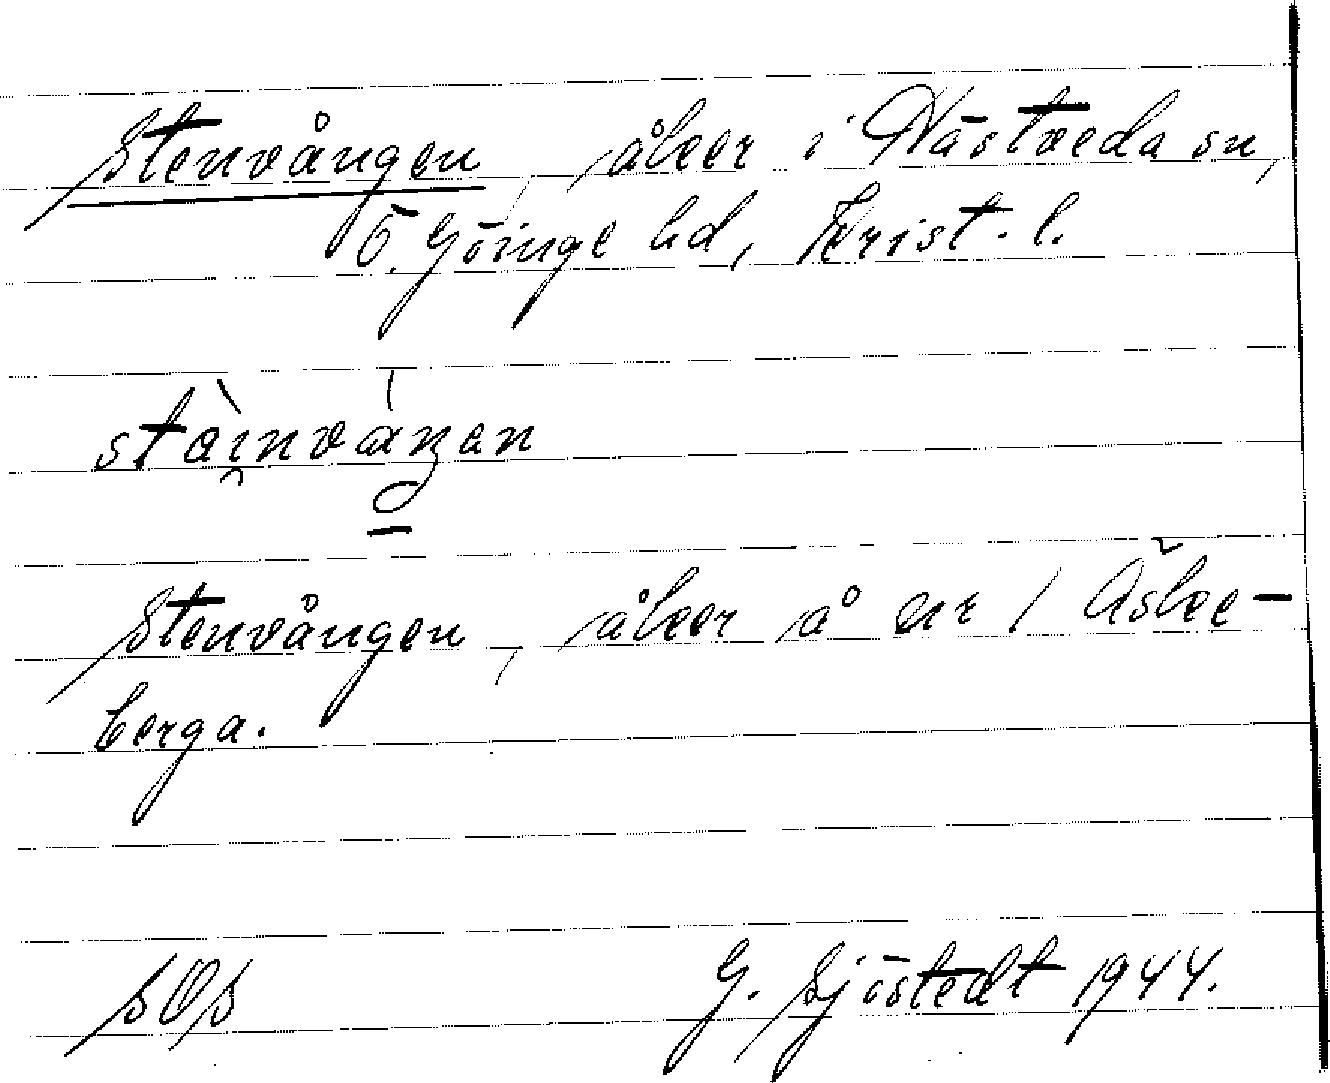 Stenvången, åker i Nästveda sn,
Ö. Göinge hd, Krist. l.
Stenvången, åker å nr 1 Åske-
berga.
SOS G. Sjöstedt 1944.